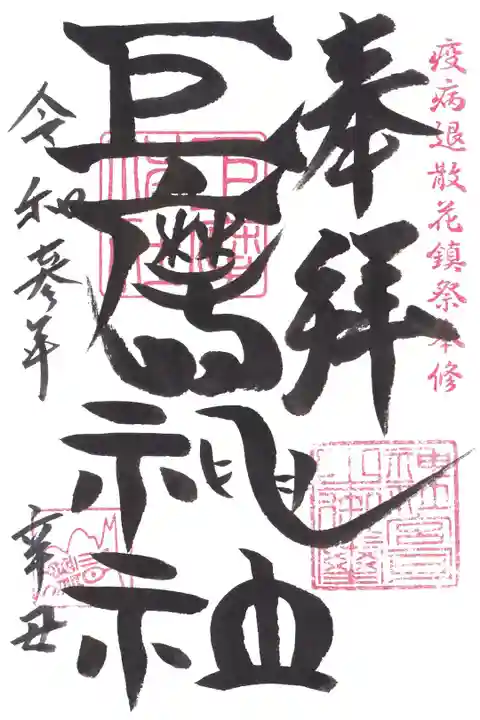 疫病退散花鎮祭奉修
奉拝
巨麻神社
令和参年
辛丑